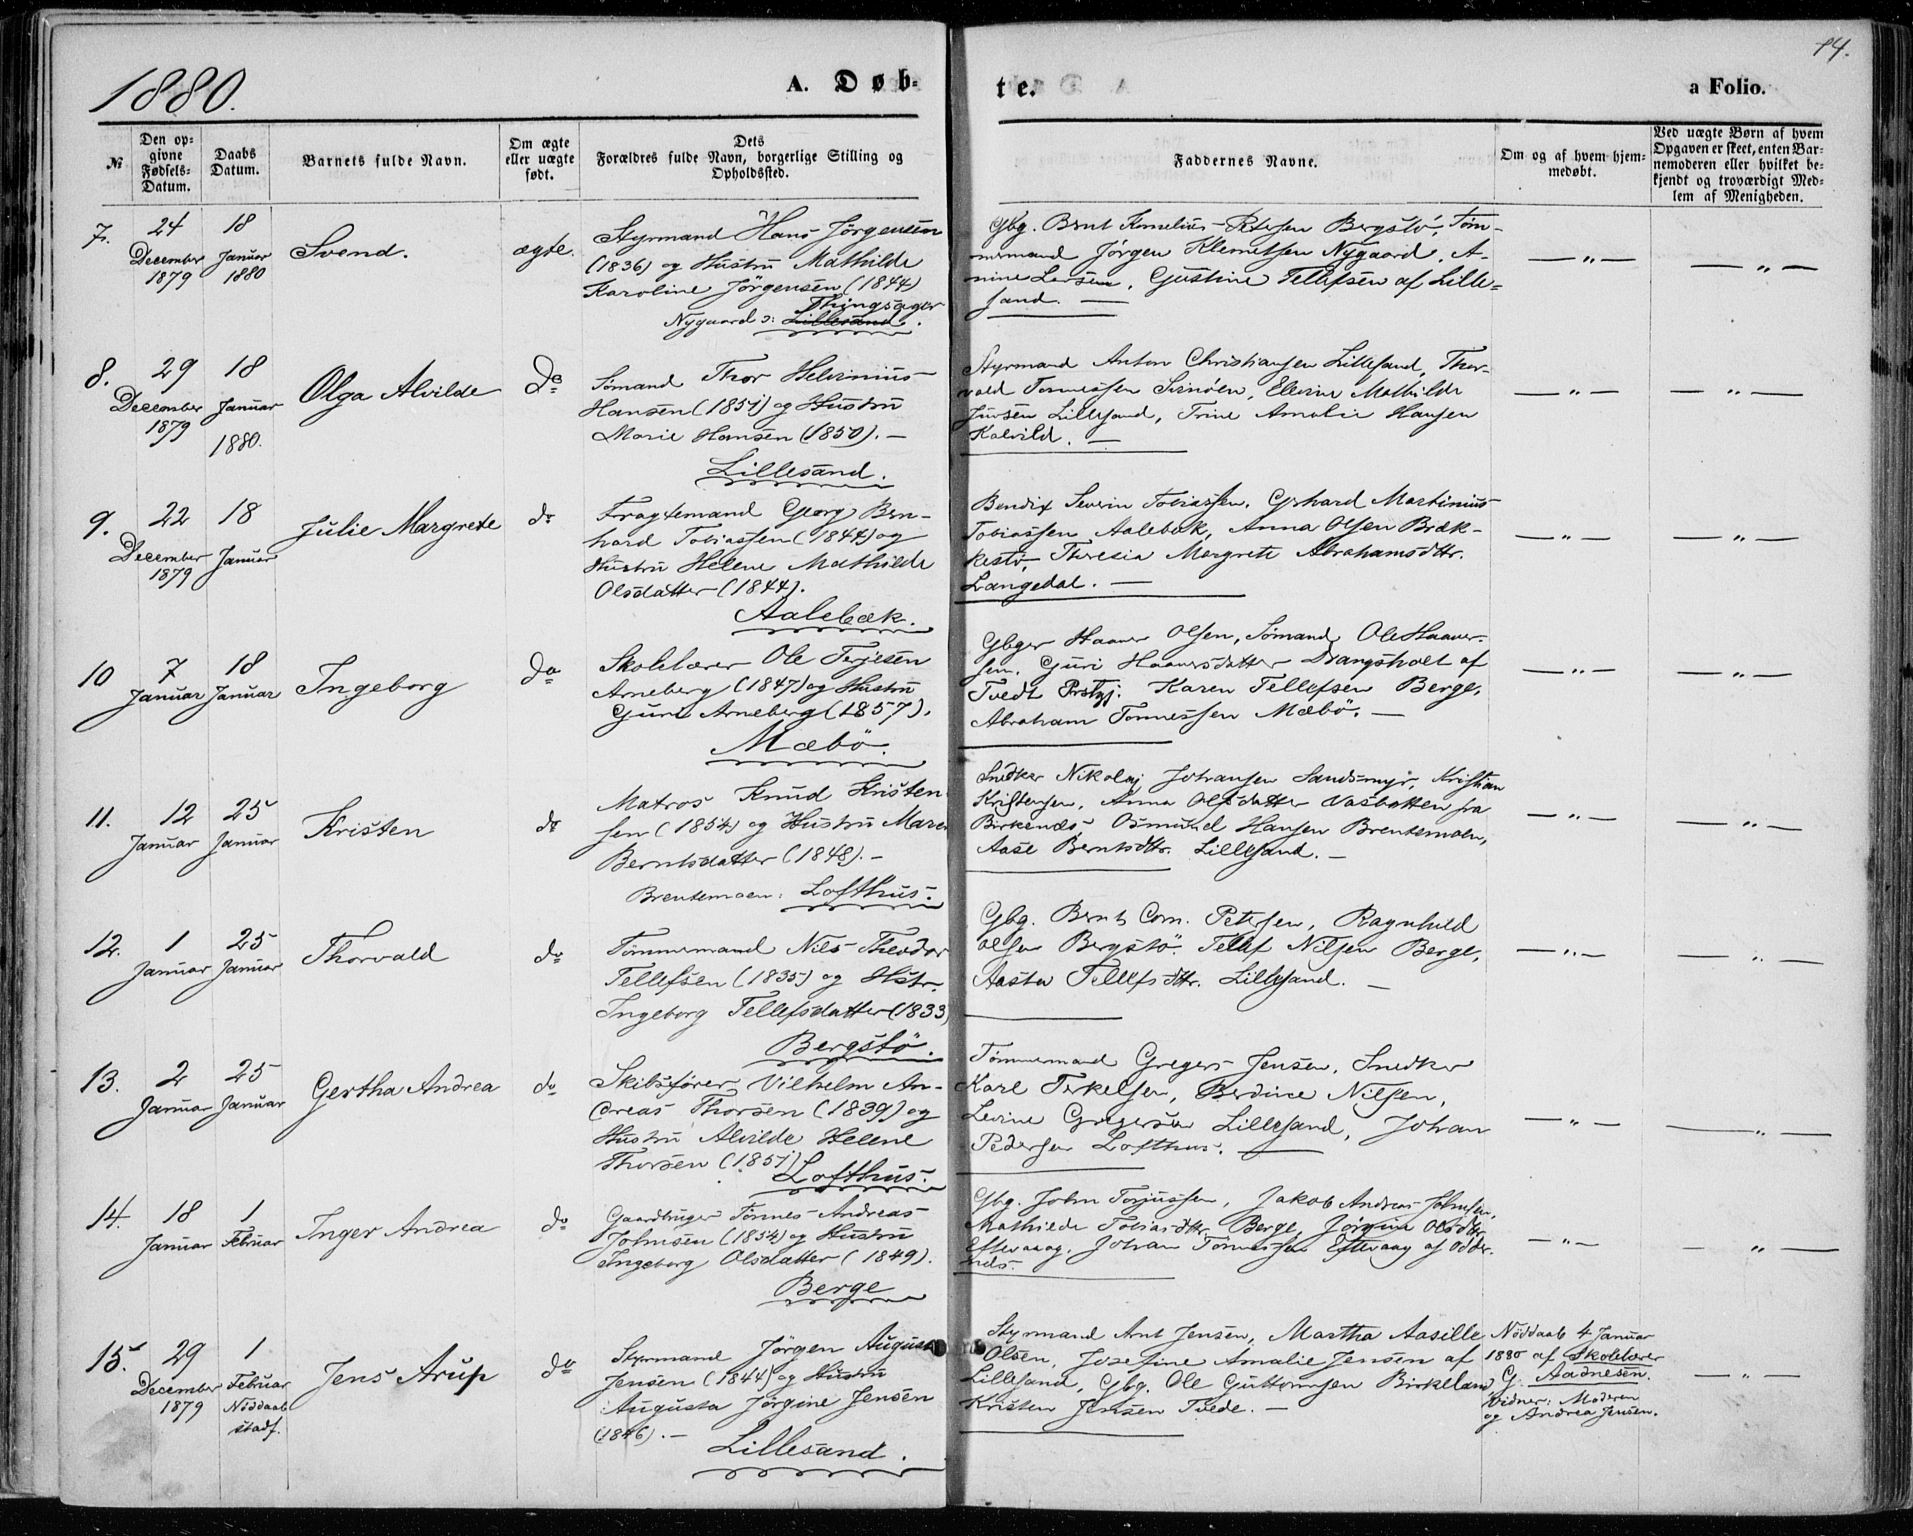 1880.
A. Døb-
te.
a Folio.
14.
№
Den op-
givne
Fødsels-
Datum.
Daabs
Datum.
Barnets fulde Navn.
Om ægte
eller uægte
født.
Dets
Forældres fulde Navn, borgerlige Stilling og
Opholdssted.
Faddernes Navne.
Om og af hvem hjem-
medøbt.
Ved uægte Børn af hvem
Opgaven er skeet, enten Bar-
nemoderen eller hvilket be-
kjendt og troværdigt Med-
lem af Menigheden.
7.
24
December
1879
18
Januar
1880
Svend.
ægte.
Styrmand Hans Jörgensen
(1836) og Hustru Mathilde
Karoline Jörgensen (1844)
Thingsager
Nygaard ɔ: Lillesand.
Gbg. Bernt Kornelius Petersen Bergstö, Töm-
mermand Jörgen Klemetsen Nygaard, A-
nine Larsen, Gustine Tellefsen af Lille-
sand. —
— „ —
— „ —
8.
29
December
1879
18
Januar
1880.
Olga Alvilde
Do
Sömand Thor Helvinius
Hansen (1851) og Hustru
Marie Hansen (1850). —
Lillesand.
Styrmand Anton Christiansen Lillesand, Thor-
vald Tonnessen Svinöen, Ellevine Mathilde
Lillesand, Trine Amalie Hansen
Kalvild. —
— „ —
— „ —
9.
22
December
1879
18
Januar
Julie Margrete
do
Fragtemand Georg Bern-
hard Tobiassen (1844) og
Hustru Helene Mathilde
Olsdatter (1844).
Aalebæk.
Bendix Severin Tobiassen, Gerhard Martinius
Tobiassen Aalebæk, Anna Olsen Bræk-
kestö, Theresia Margrete Abrahamsdtr.
Langedal. —
— „ —
— „ —
10
7
Januar
18
Januar
Ingeborg
do
Skolelærer Ole Terjesen
Arneberg (1847) og Hustru
Guri Arneberg (1857).
Mæbö.
Gbger Haaver Olsen, Sömand Ole Haaver-
sen, Guri Haaversdatter Drangsholt af
Tvedt Prstgj. Karen Tellefsen Berge,
Abraham Tonnessen Mæbö. —
— „ —
— „ —
11.
12
Januar
25
Januar
Kristen
do
Matros Knud Kristen-
sen (1854) og Hustru Maren
Berntsdatter (1848). —
Brentemoen: Lofthus.
Snedker Nikolaj Johansen Sandsmyr, Kristian
Kristensen, Anna Olsdatter Vasbotten fra
Birkenæs, Osmund Hansen Brentemoen,
Aase Berntsdtr. Lillesand. —
— „ —
— „ —
12.
1
Januar
25
Januar
Thorvald
do
Tömmermand Nils Theodor
Tellefsen (1835) og Hstr.
Ingeborg Tellefsdatter (1833)
Bergstö.
Gbg. Bernt Corn. Petersen, Ragnhild
Olsen Bergstö. Tellef Nilsen Berge,
Aasta Tellefsdtr. Lillesand. —
— „ —
— „ —
13.
2
Januar
25
Januar
Gertha Andrea
do
Skibsförer Vilhelm An-
dreas Thorsen (1839) og
Hustru Alvilde Helene
Thorsen (1851)
Lofthus.
Tömmermand Gregers Jensen, Snedker
Karl Terkelsen, Berdine Nilsen,
Levine Gregersen Lillesand, Johan
Pedersen Lofthus. —
— „ —
— „ —
14.
18
Januar
1
Februar
Inger Andrea
do
Gaardbruger Tönnes Andreas
Johnsen (1854) og Hustru
Ingeborg Olsdatter (1849).
Berge
Gbg. John Torjussen, Jakob Andreas Johnsen,
Mathilde Tobiasdtr. Berge, Jörgine Olsdtr.
Eftevaag, Johan Tönnessen Eftevaag af Odder-
næs.
— „ —
— „ —
15.
29
December
1879
1
Februar
Nöddaab
stadf.
Jens Arup
do
Styrmand Jörgen August
Jensen (1844) og Hustru
Augusta Jörgine Jensen
(1846). —
Lillesand.
Styrmand Arnt Jensen, Martha Aasille
Olsen, Josefine Amalie Jensen af
Lillesand, Gbg. Ole Guttormsen Birkeland,
Kristen Jensen Tvede. —
Nöddaab 4 Januar
1880 af Skolelærer
G. Aadnesen.
Vidner: Moderen
og Andrea Jensen.
— „ —